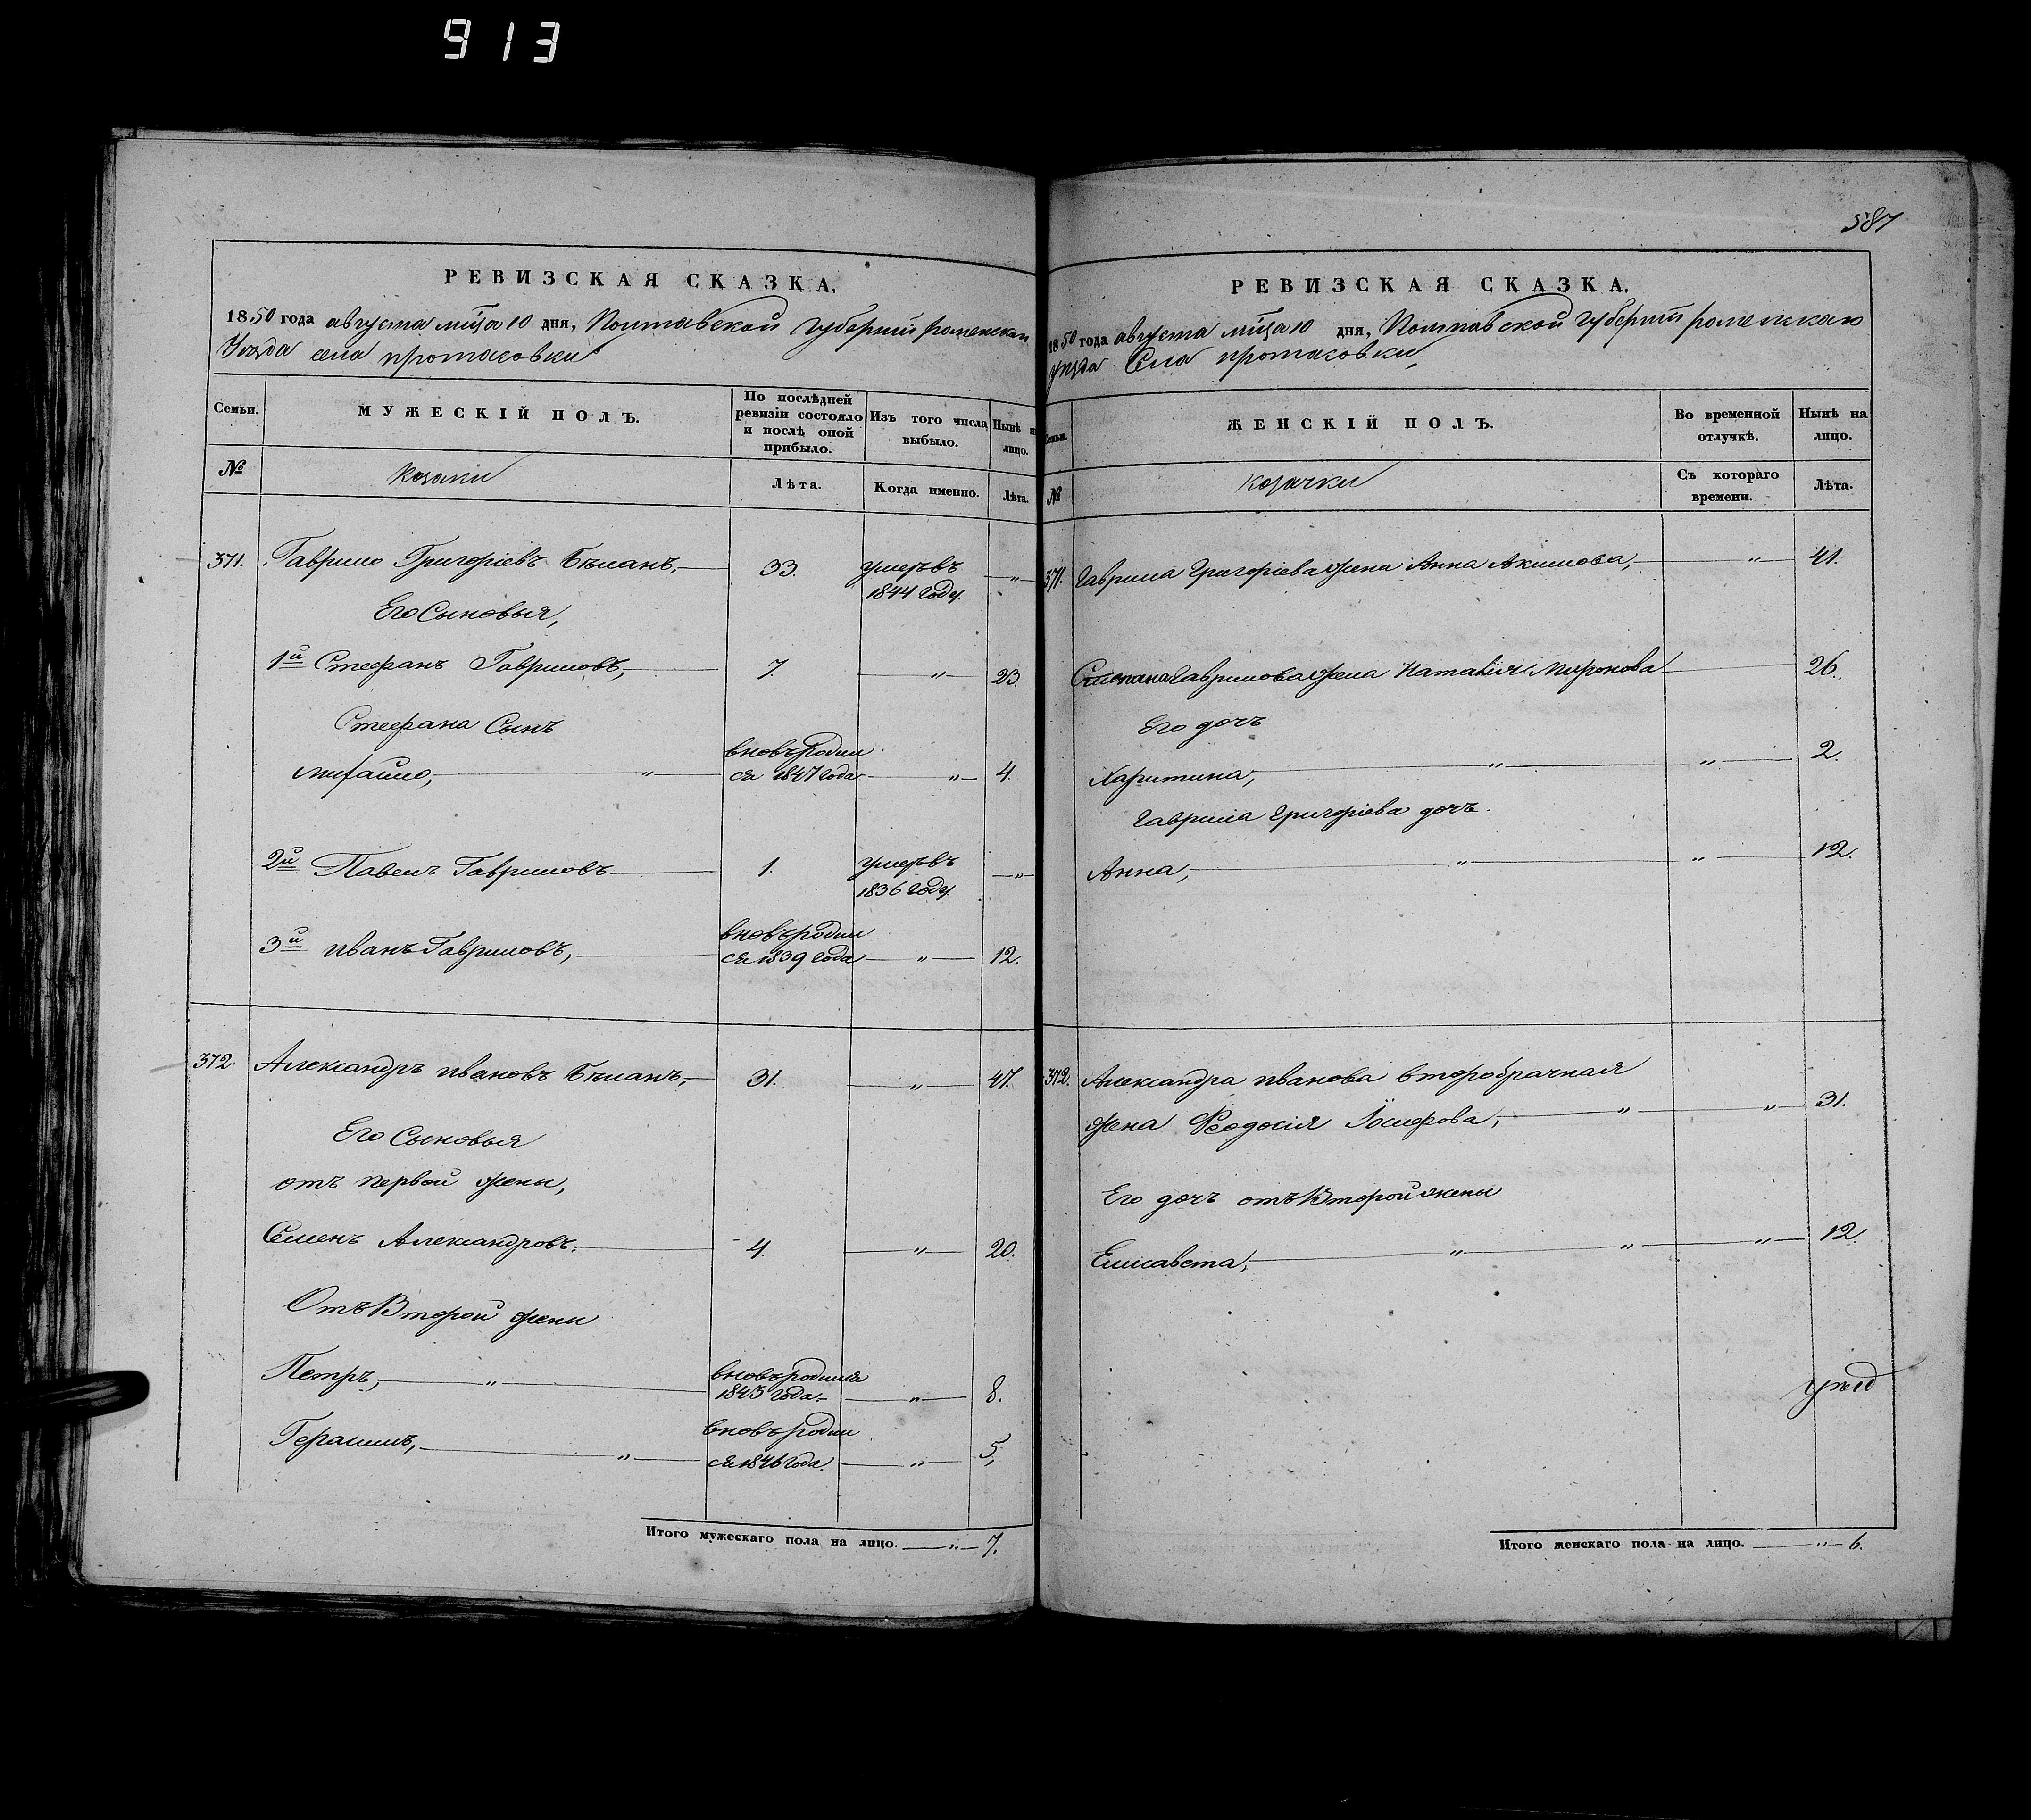 913
587
РЕВИЗСКАЯ СКАЗКА.
1850 года августа мѣца 10 дня, Полтавской губерніи роменскаго
Уѣзда села протасовки
Семьи.
МУЖЕСКІЙ ПОЛЪ.
По послѣдней ревизіи состояло и послѣ оной прибыло.
Изъ того числа выбыло.
Нынѣ на лицо.
№
козаки
Лѣта.
Когда именно.
Лѣта.
371. Гаврило Григоріевъ Бѣланъ, 33. умеръ въ 1844 году. „
Его Сыновья,
1й Стефанъ Гавриловъ, 7. „ 23.
Стефана Сынъ
михайло, „ вновь родился 1847 года „ 4.
2й Павелъ Гавриловъ 1. умеръ въ 1836 году. „
3й иванъ Гавриловъ, вновь родился 1839 года „ 12.
372. Александръ ивановъ Бѣланъ, 31. „ 47.
Его Сыновья
отъ первой жены,
Семенъ Александровъ, 4. „ 20.
Отъ Второй жены
Петръ, „ вновь родился 1843 года „ 8.
Герасимъ, „ вновь родился 1846 года. „ 5,
Итого мужескаго пола на лицо. „ 7.
РЕВИЗСКАЯ СКАЗКА.
1850 года августа мѣца 10 дня, Полтавской губерніи роменскаго
уѣзда Села протасовки,
Семьи.
ЖЕНСКІЙ ПОЛЪ.
Во временной отлучкѣ.
Нынѣ на лицо.
№
козачки
Съ котораго времени.
Лѣта.
371. Гаврила Григоріева жена Анна Акимова, „ 41.
Степана Гаврилова жена Наталія Миронова 26.
Его дочь
Харитина, „ „ 2.
Гаврила Григоріева дочь.
Анна, „ „ 12.
372. Александра иванова второбрачная
жена Феодосія Іосифова, „ „ 31.
Его дочь отъ Второй жены
Елисавета, „ „ „ 12.
Итого женскаго пола на лицо. „ 6.